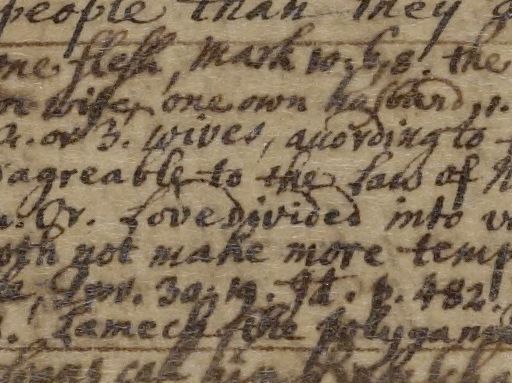 people than they g
one flesh, Mark 10. 6, 8. the
or wife, one own husband, 1.
2. or 3. wives, acording to
agreable to the law of N
u. Or. Love divided into v
oth not make more temp
p. 482.
Lamech the polygam